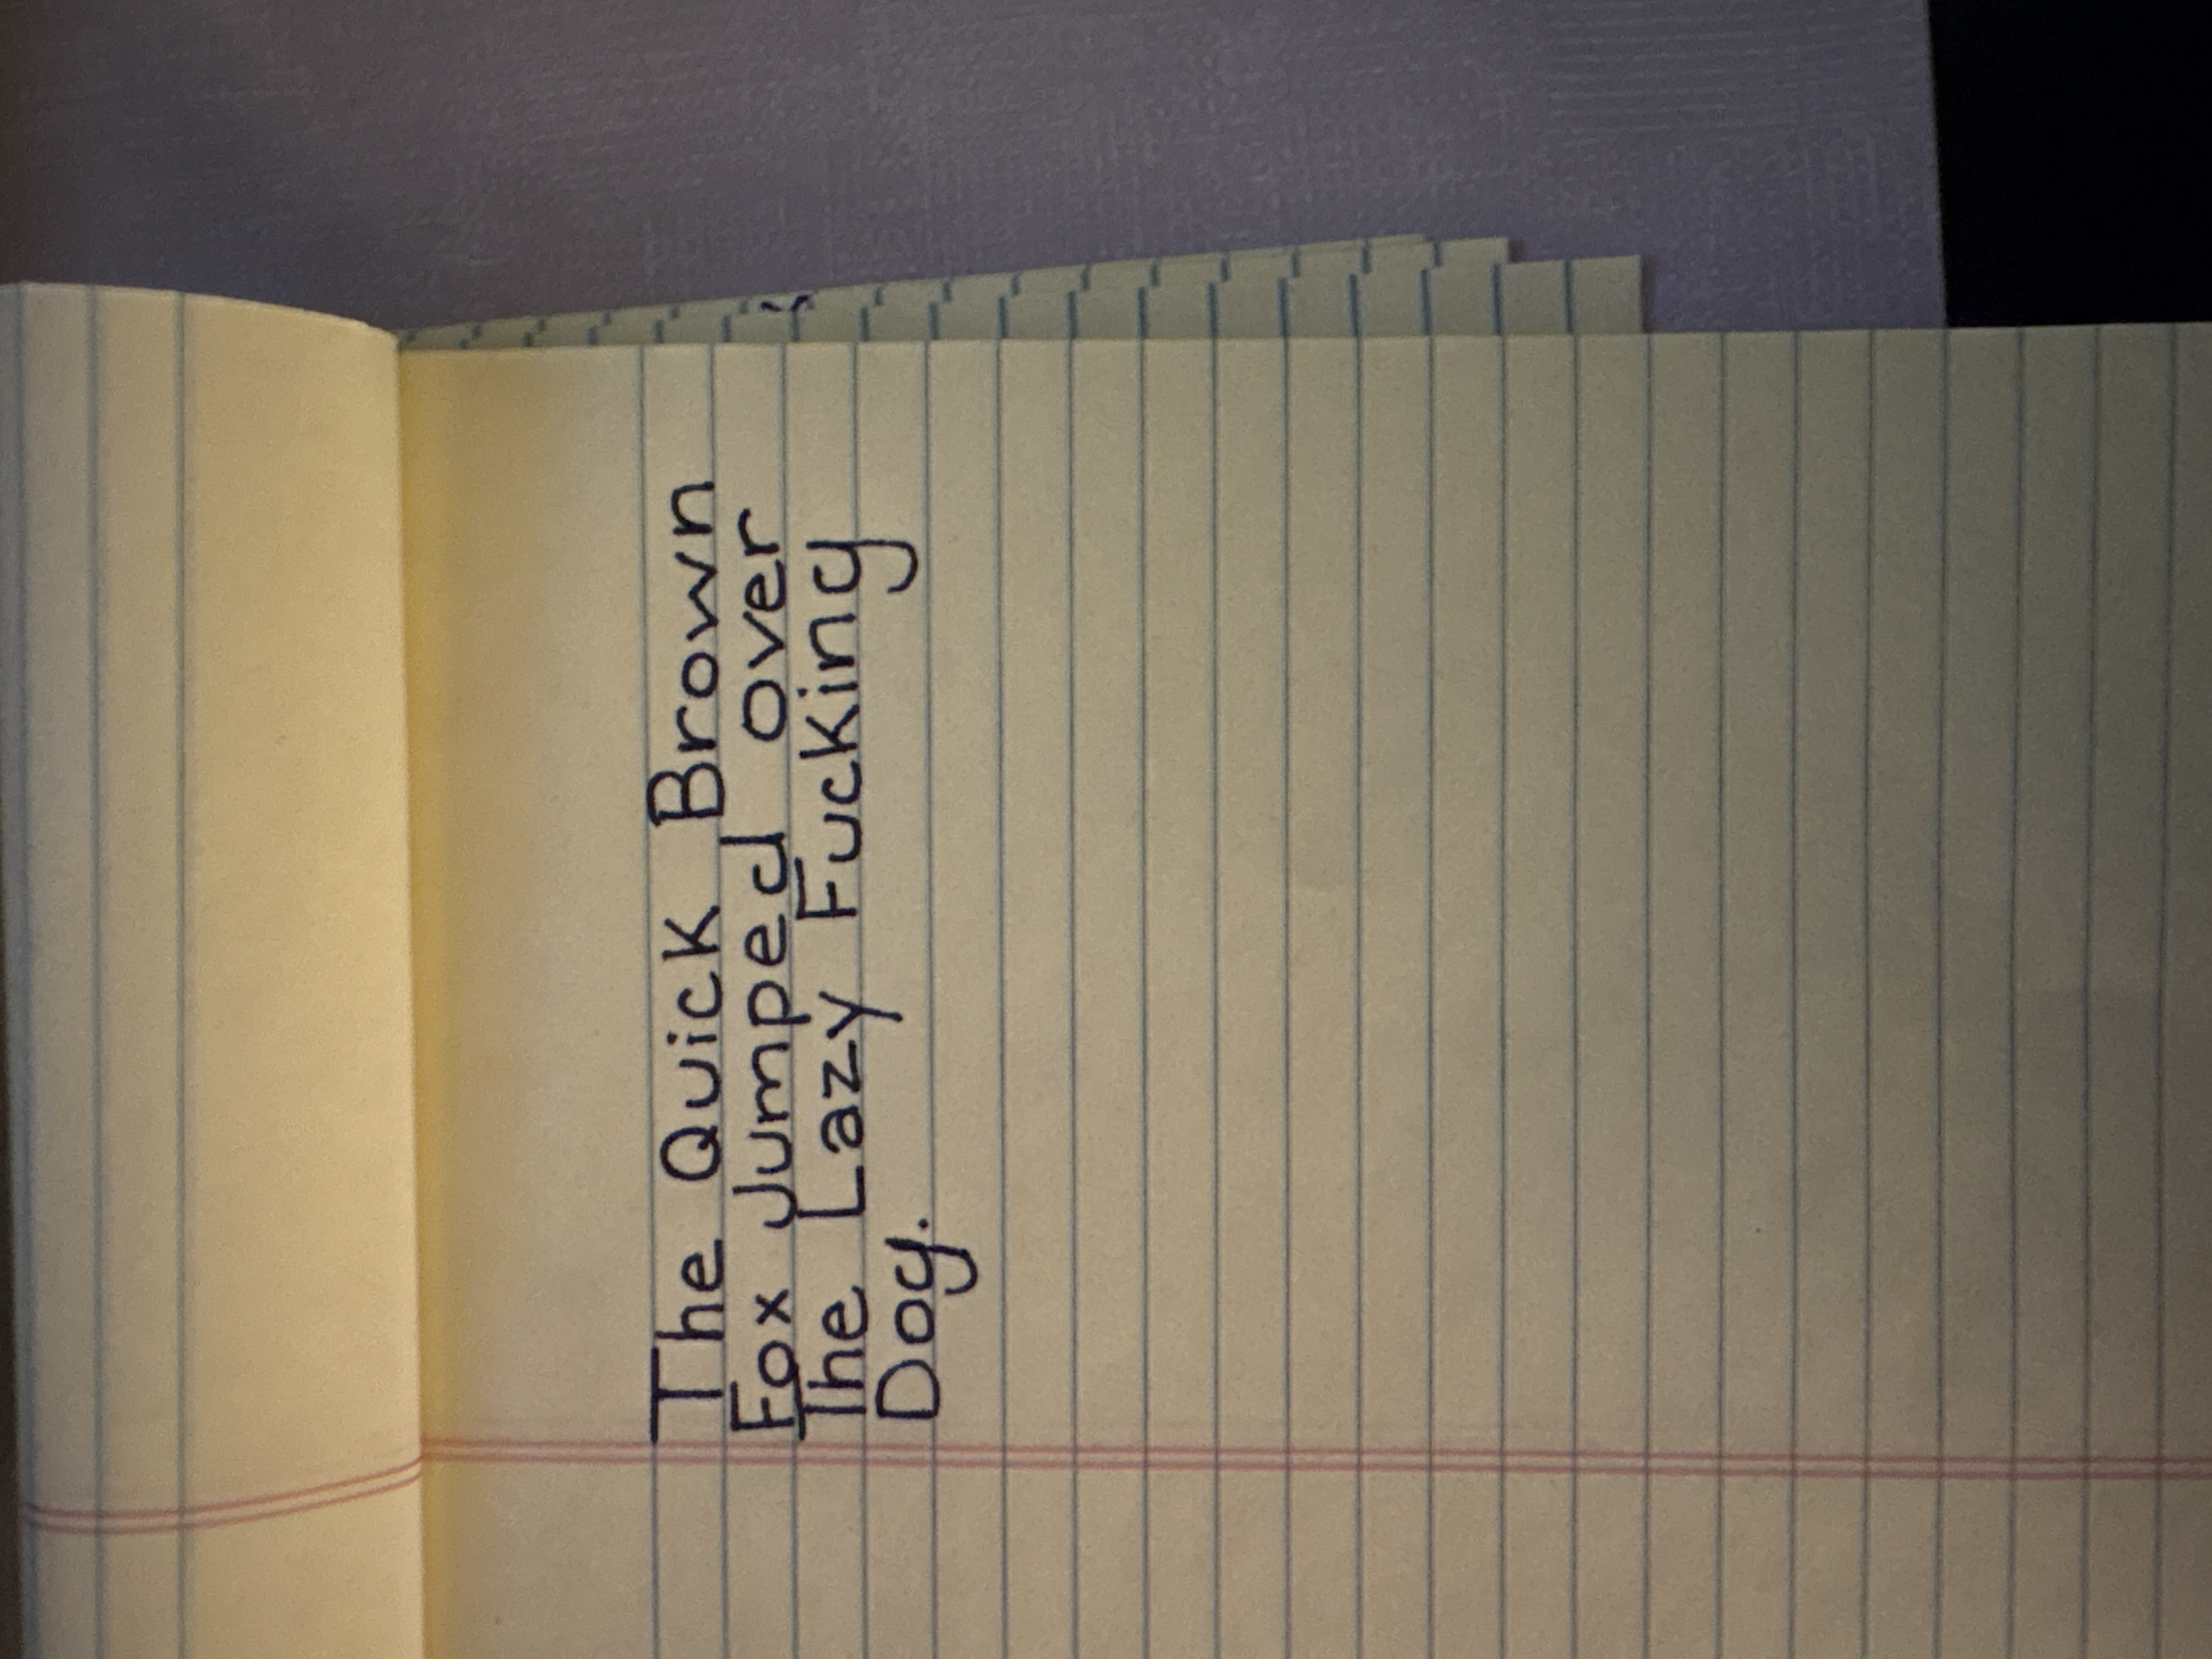 The Quick Brown
Fox Jumped over
The Lazy Fucking
Dog.